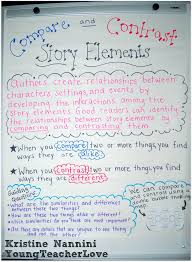 Compare and Contrast
Story Elements
Authors create relationships between
characters, settings, and events by
developing the interactions among the
story elements. Good readers can identify
the relationships between story elements by
comparing and contrasting them.
★When you compare two things, you find
ways they are alike.
★When you contrast two things, you find
ways they are different.
Guiding questions
•What are the similarities and differences
between these two things?
•How are these two things alike or different?
•Which similarities do you think are most important?
We can compare
Kristine Nannini
YoungTeacherLove